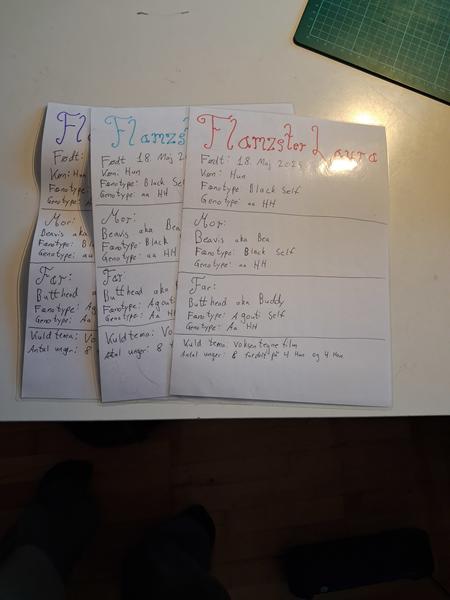 Fl
Født:
Køn: Hun
Fænotype:
Genotype:
Mor:
Beavis aka
Fænotype: Bl
Genotype: aa
Far:
Butthead
Fænotype: Ag
Genotype: Aa
Kuld tema: Vo
Antal unger: 8
Flamzst
Født 18. Maj 2
Køn: Hun
Fænotype: Black Sel
Genotype: aa HH
Mor:
Beavis aka Bea
Fænotype: Black
Genotype: aa HH
Far
Butthead aka
Fænotype: Agouti
Genotype: Aa HH
Kuld tema: Voksen
Antal unger: 8
Flamzster Laura
Født: 18. Maj
Køn: Hun
Fænotype Black Self
Genotype: aa HH
Mor:
Beavis aka Bea
Fænotype: Black Self
Genotype: aa HH
Far:
Butthead aka Buddy
Fænotype: Agouti Self
Genotype: Aa HH
Kuld tema: Voksentegnefilm
Antal unger: 8 fordelt på 4 Han og 4 Hun